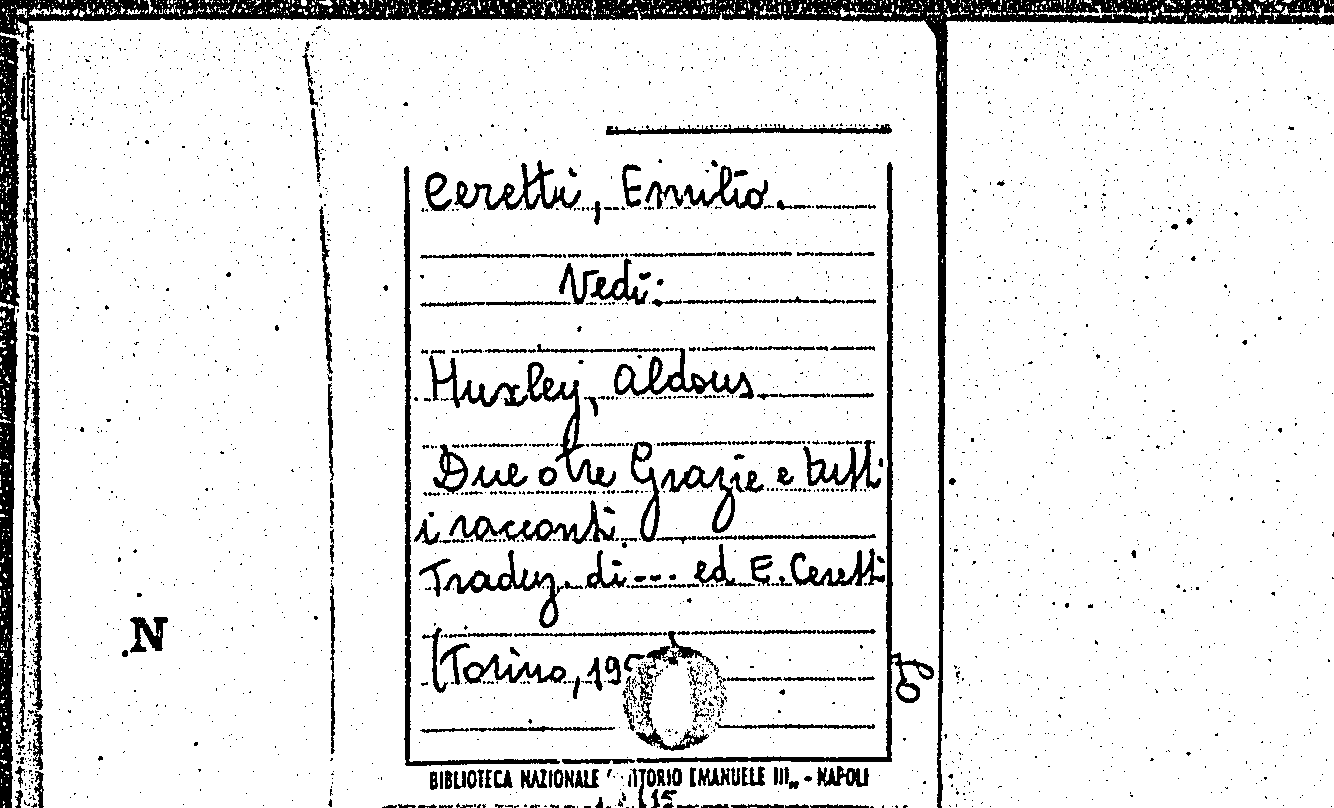 Ceretti, Emilio.
Vedi:
Huxley, Aldous.
Due o tre Grazie e tutti
i racconti
Traduz. di --- ed E. Ceretti
(Torino, 195
Lo
.N
BIBLIOTECA NAZIONALE "VITTORIO EMANUELE III„ - NAPOLI